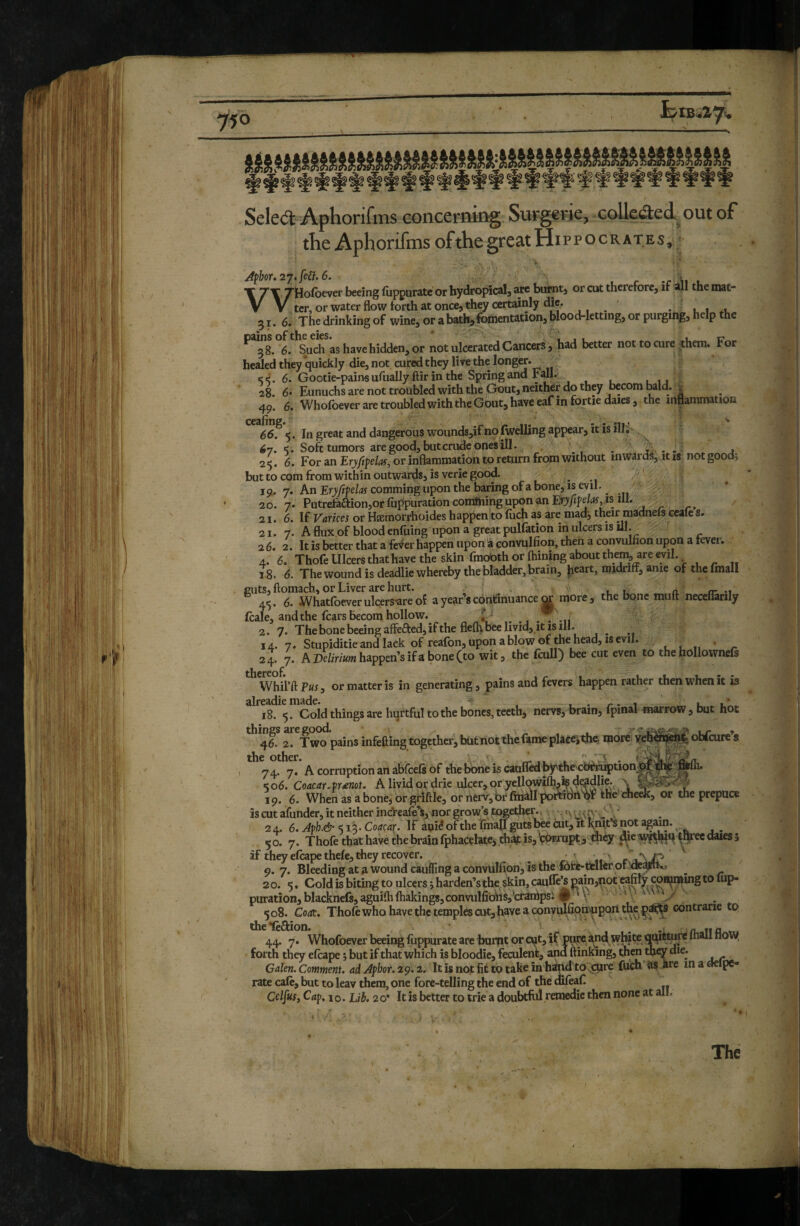 750 LIB.27.
Select Aphorisms concerning Surgerie, collected out of
the Aphorisms of the great HIPPOCRATES.
Aphor. 27. sect. 6.
WHosoever beeing suppurate or hydropical, are burnt, or cut therefore, if all the mat-
ter, or water flow forth at once, they certainly die.
31. 6. The drinking of wine, or a bath, fomentation, blood-letting, or purging, help the
pains of the eies.
38. 6. Such as have hidden, or not ulcerated Cancers, had better not to cure them. For
healed they quickly die, not cured they live the longer.
55. 6. Gootie-pains usually stir in the Spring and Fall.
28. 6. Eunuchs are not troubled with the Gout, neither do they becom bald.
49. 6. Whosoever are troubled with the Gout, have eas in fortie daies, the inflammation
ceasing.
66. 5. In great and dangerous wounds, if no swelling appear, it is ill.
67. 5. Soft tumors are good, but crude ones ill.
25. 6. For an Erysipelas, or inflammation to return from without inwards, it is not good;
but to com from within outwards, is verie good.
19. 7. An Erysipelas comming upon the baring of a bone, is evil.
20. 7. Putrefaction, or suppuration comming upon an Erysipelas, is ill.
21. 6. If Varices or Hæmorrhoides happen to such as are mad, their madness cease's.
21. 7. A flux of blood ensuing upon a great pulsation in ulcers is ill.
26. 2. It is better that a fever happen upon a convulsion, then a convulsion upon a fever.
4. 6. Those Ulcers that have the skin smooth or shining about them, are evil.
18. 6. The wound is deadlie whereby the bladder, brain, heart, midriff, anie of the small
guts, stomach, or Liver are hurt.
45. 6. Whatsoever ulcers are of a year's continuance or more, the bone must necessarily
scale, and the scars becom hollow.
2. 7. The bone beeing affected, if the flesh bee livid, it is ill.
14. 7. Stupiditie and lack of reason, upon a blow of the head, is evil.
24. 7. A Delirium happen's if a bone (to wit, the scull) bee cut even to the hollowness
thereof.
Whil'st Pus, or matter is in generating, pains and fevers happen rather then when it is
alreadie made.
18. 5. Cold things are hurtful to the bones, teeth, nervs, brain, spinal marrow, but hot
things are good.
46. 2. Two pains infesting together, but not the same place, the more vehement obscure's
the other.
74. 7. A corruption an abscess of the bone is caussed by the corruption of the flesh.
506. Coacar. prænot. A livid or drie ulcer, or yellowish, is deadlie.
19. 6. When as a bone, or gristle, or nerv, or small portion of the cheek, or the prepuce
is cut asunder, it neither increase's, nor grow's together.
24. 6. Aph. & 513. Coacar. If anie of the small guts bee cut, it knit's not again.
50. 7. Those that have the brain sphacelate, that is, corrupt, they die within three daies;
if they escape these, they recover.
9. 7. Bleeding at a wound caussing a convulsion, is the fore-teller of death.
20. 5. Cold is biting to ulcers; harden's the skin, causse's pain, not easily comming to sup-
puration, blackness, aguish shakings, convulsions, cramps.
508. Coac. Those who have the temples cut, have a convulsion upon the parts contrarie to
the section.
44. 7. Whosoever beeing suppurate are burnt or cut, if pure and white quitture shall flow
forth they escape; but if that which is bloodie, feculent, and stinking, then they die.
Galen. Comment. ad Aphor. 29. 2. It is not fit to take in hand to cure such as are in a despe-
rate case, but to leav them, one fore-telling the end of the diseas.
Celsus, Cap. 10. Lib. 20. It is better to trie a doubtful remedie then none at all.
The